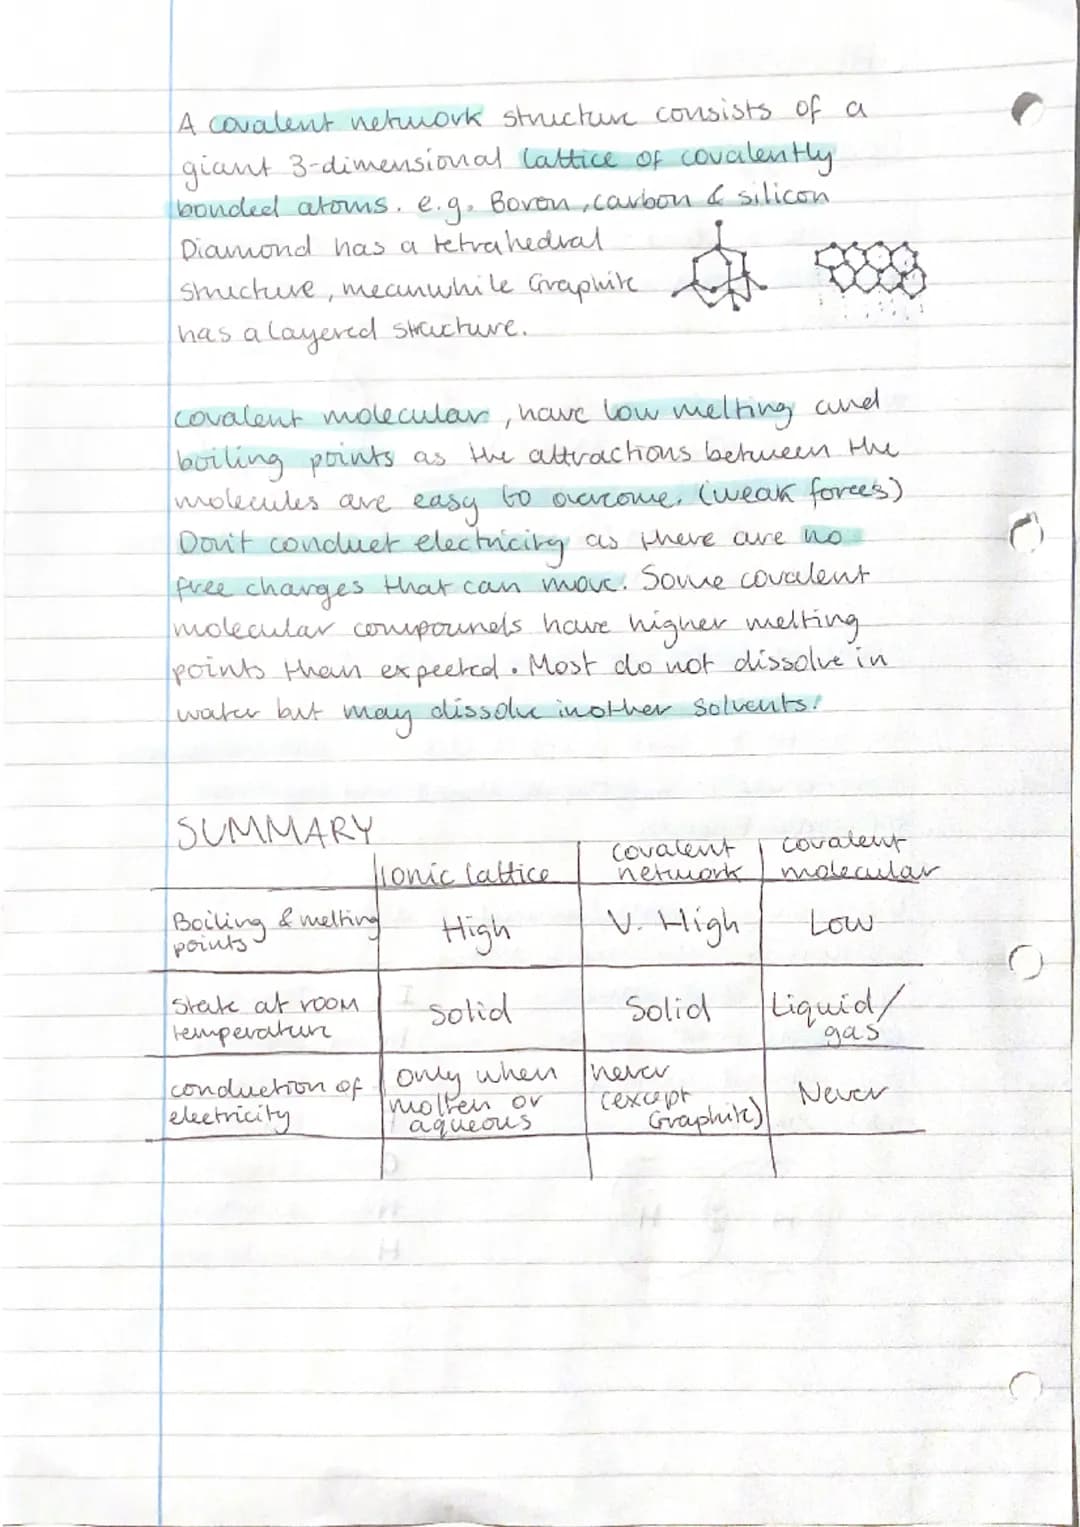 A covalent network structure consists of a
giant 3-dimensional lattice of covalently
bonded atoms. e.g. Boron, carbon & silicon
Diamond has a tetrahedral
structure, meanwhile Graphite
has a layered structure.
covalent molecular, have low melting and
boiling points as the attractions between the
molecules are easy to overcome. (weak forces)
Don't conduct electricity as there are no
free charges that can move. Some covalent
molecular compounds have higher melting
points than expected. Most do not dissolve in
water but may dissolve in other solvents.
SUMMARY
Ionic lattice
covalent
network
covalent
molecular
Boiling & melting
points
High
V. High
Low
State at room
temperature
Solid
Solid
Liquid/
gas
conduction of
electricity
only when
molten or
aqueous
never
(except
Graphite)
Never